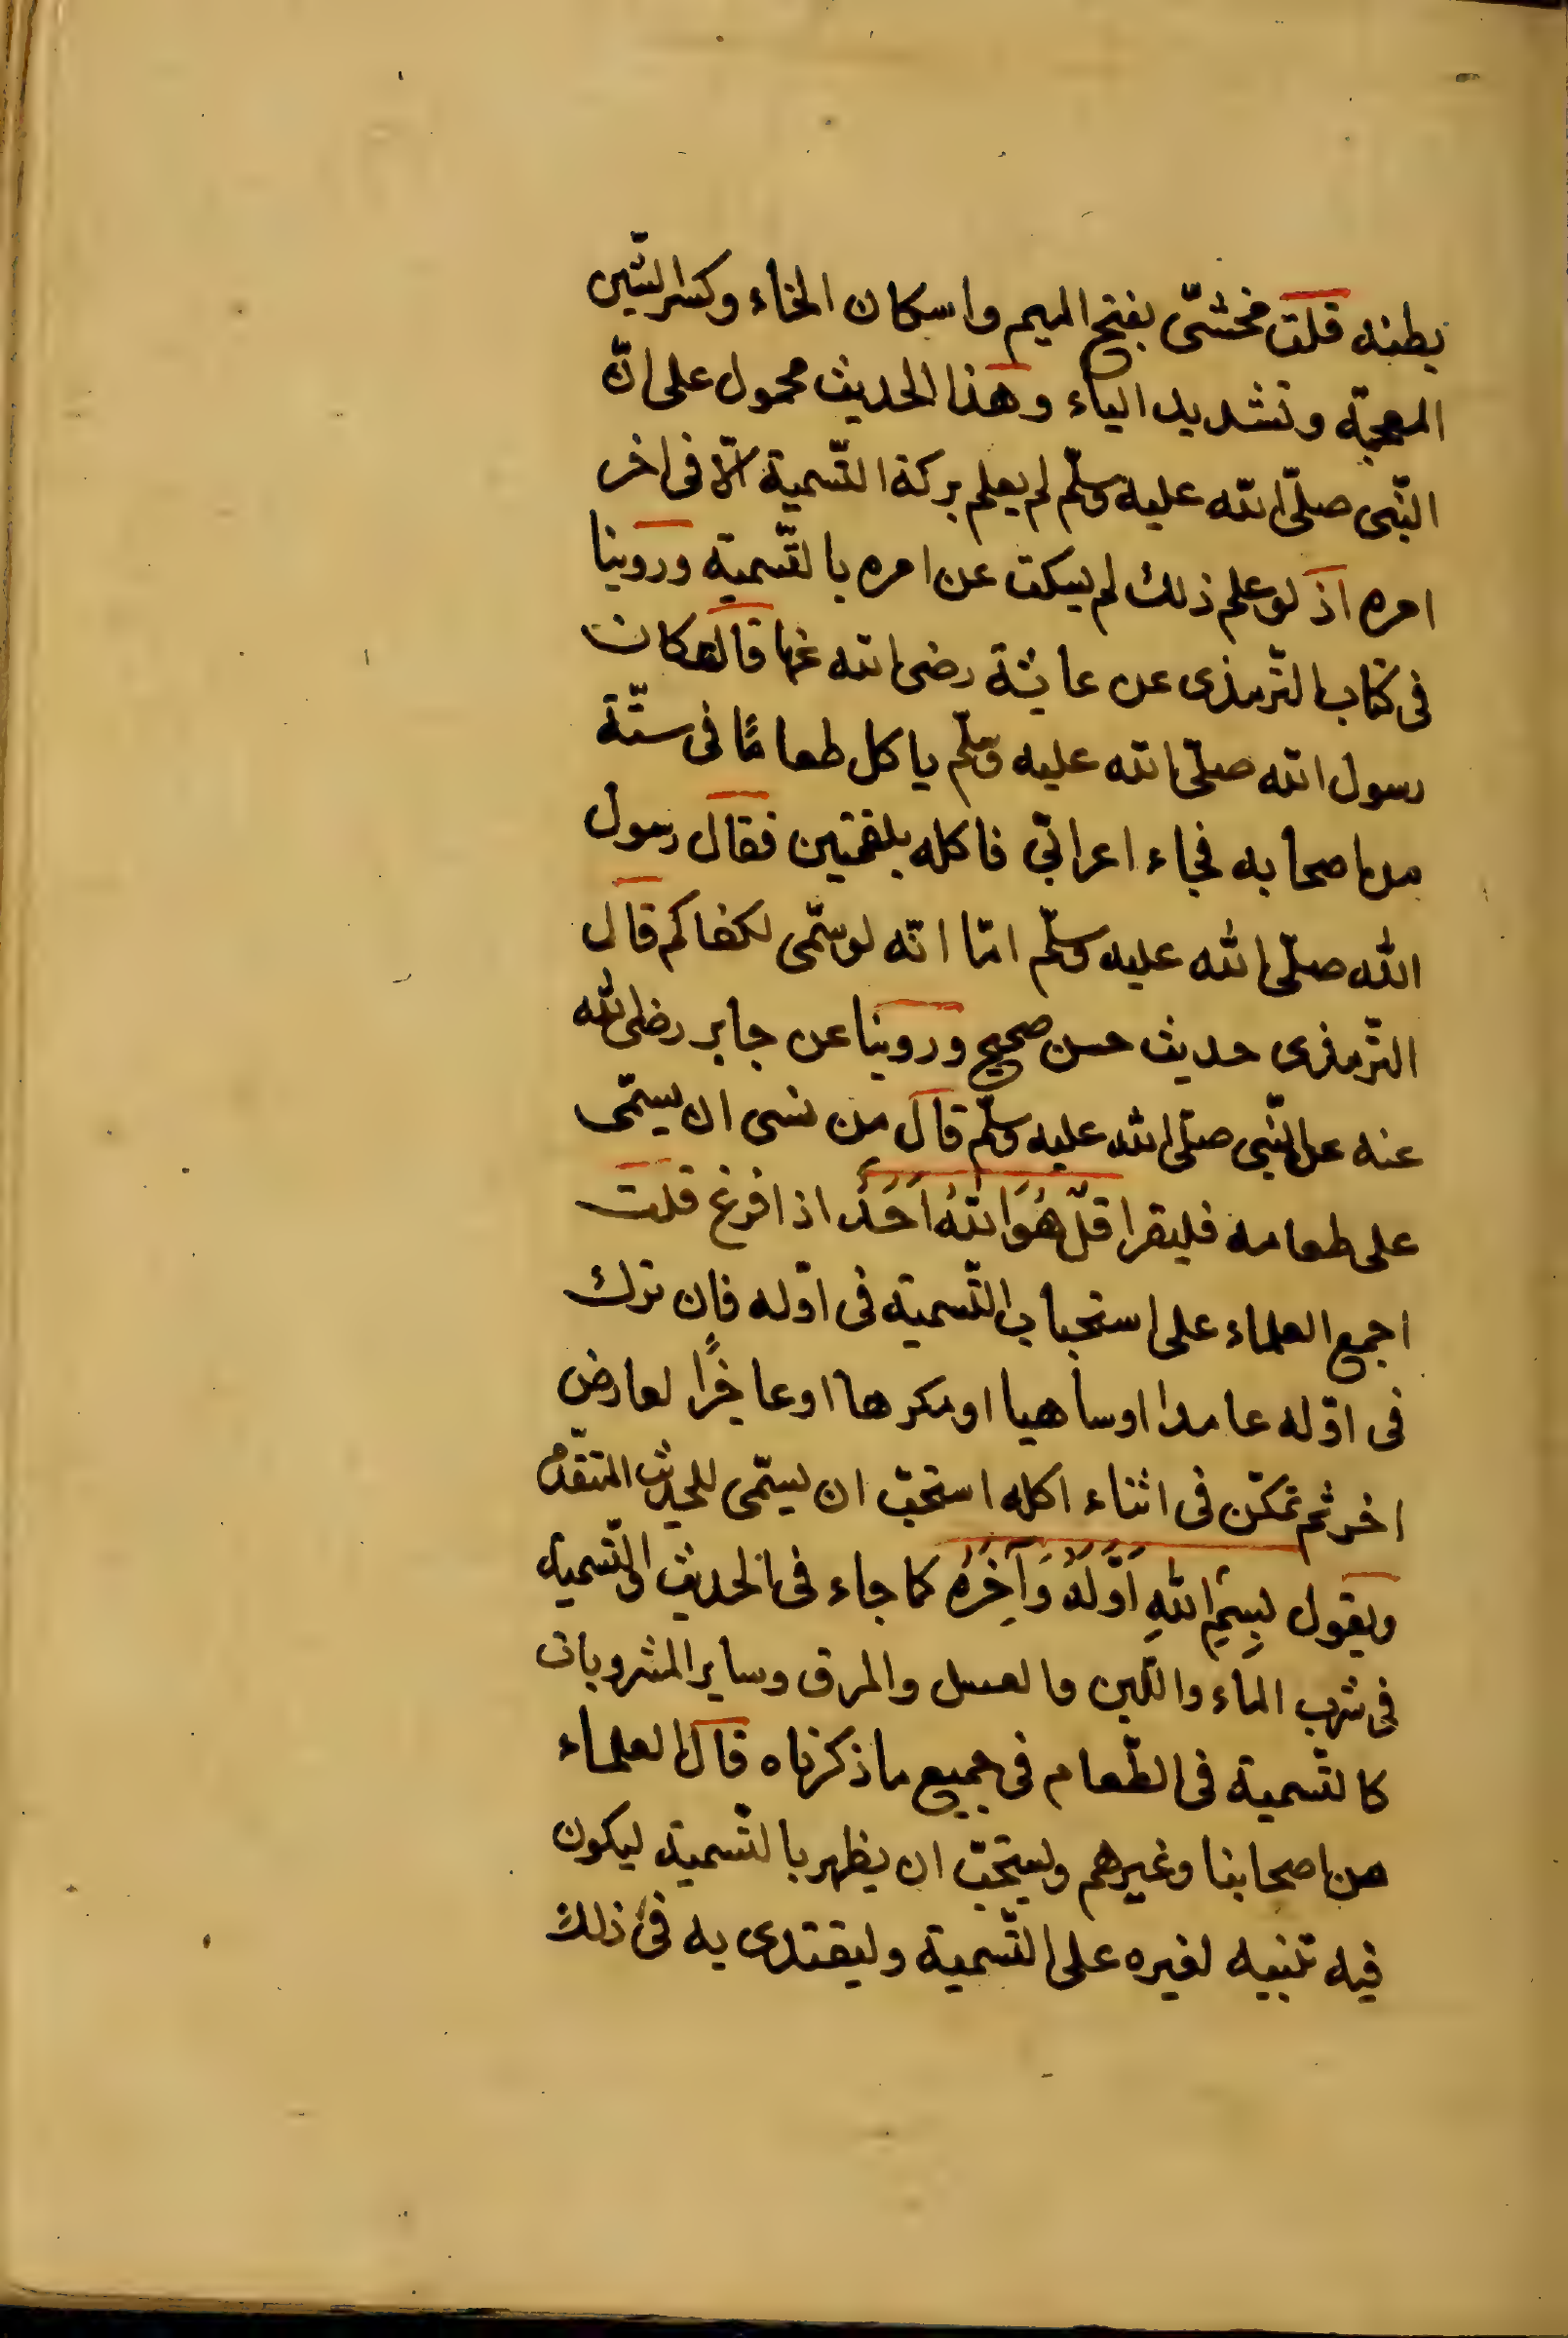 بطنه قلت مخشىّ بفتح الميم واسكان الخاء وكسر الشّين
المعجمة وتشديد الياء وهذا الحديث محمول على انّ
النّبى صلّى الله عليه وسلّم لم يعلم بركة التّسمية الّا فى اخر
امره اذ لو علم ذلك لم يسكت عن امره بالتّسمية وروينا
فى كتاب التّرمذى عن عايشة رضى الله عنها قالت كان
رسول الله صلّى الله عليه وسلّم ياكل طعامًا فى ستّة
من اصحابه فجاء اعرابّى فاكله بلقمتين فقال رسول
الله صلّى الله عليه وسلّم امّا انّه لو سمّى لكفاكم قال
التّرمذى حديث حسن صحيح وروينا عن جابر رضى الله
عنه عن النّبى صلّى الله عليه وسلّم قال من نسى ان يسمّى
على طعامه فليقرا قُلْ هُوَ اللهُ اَحَدٌ اذا فرغ قلت
اجمع العلماء على استحباب التّسمية فى اوّله فان ترك
فى اوّله عامدا اوساهيا اومكرها اوعاجزًا لعارض
اخر ثم تمكّن فى اثناء اكله استحبّ ان يسمّى للحديث المتقدّم
ويقول بِسْمِ اللهِ اَوَّلَهُ وَآخِرَهُ كما جاء فى الحديث والتّسمية
فى شرب الماء واللّبن والعسل والمرق وساير المشروبات
كالتّسمية فى الطّعام فى جميع ما ذكرناه قال العلماء
من اصحابنا وغيرهم ويستحبّ ان يظهر بالتّسمية ليكون
فيه تنبيه لغيره على التّسمية وليقتدى به فى ذلك